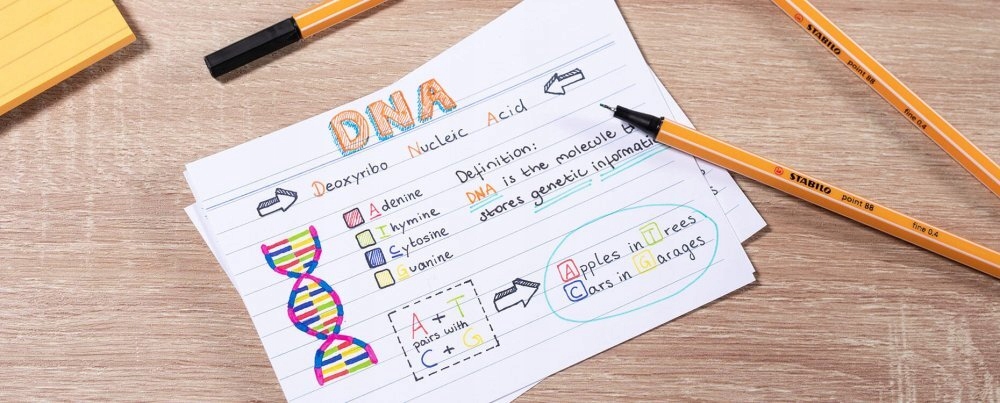 DNA
Deoxyribo Nucleic Acid
Adenine
Thymine
Cytosine
Guanine
Definition:
DNA is the molecule
stores genetic
A + T
pairs with
C + G
Apples in Trees
Cars in Garages
STABILO point 88 fine 0.4
STABILO point 88 fine 0.4